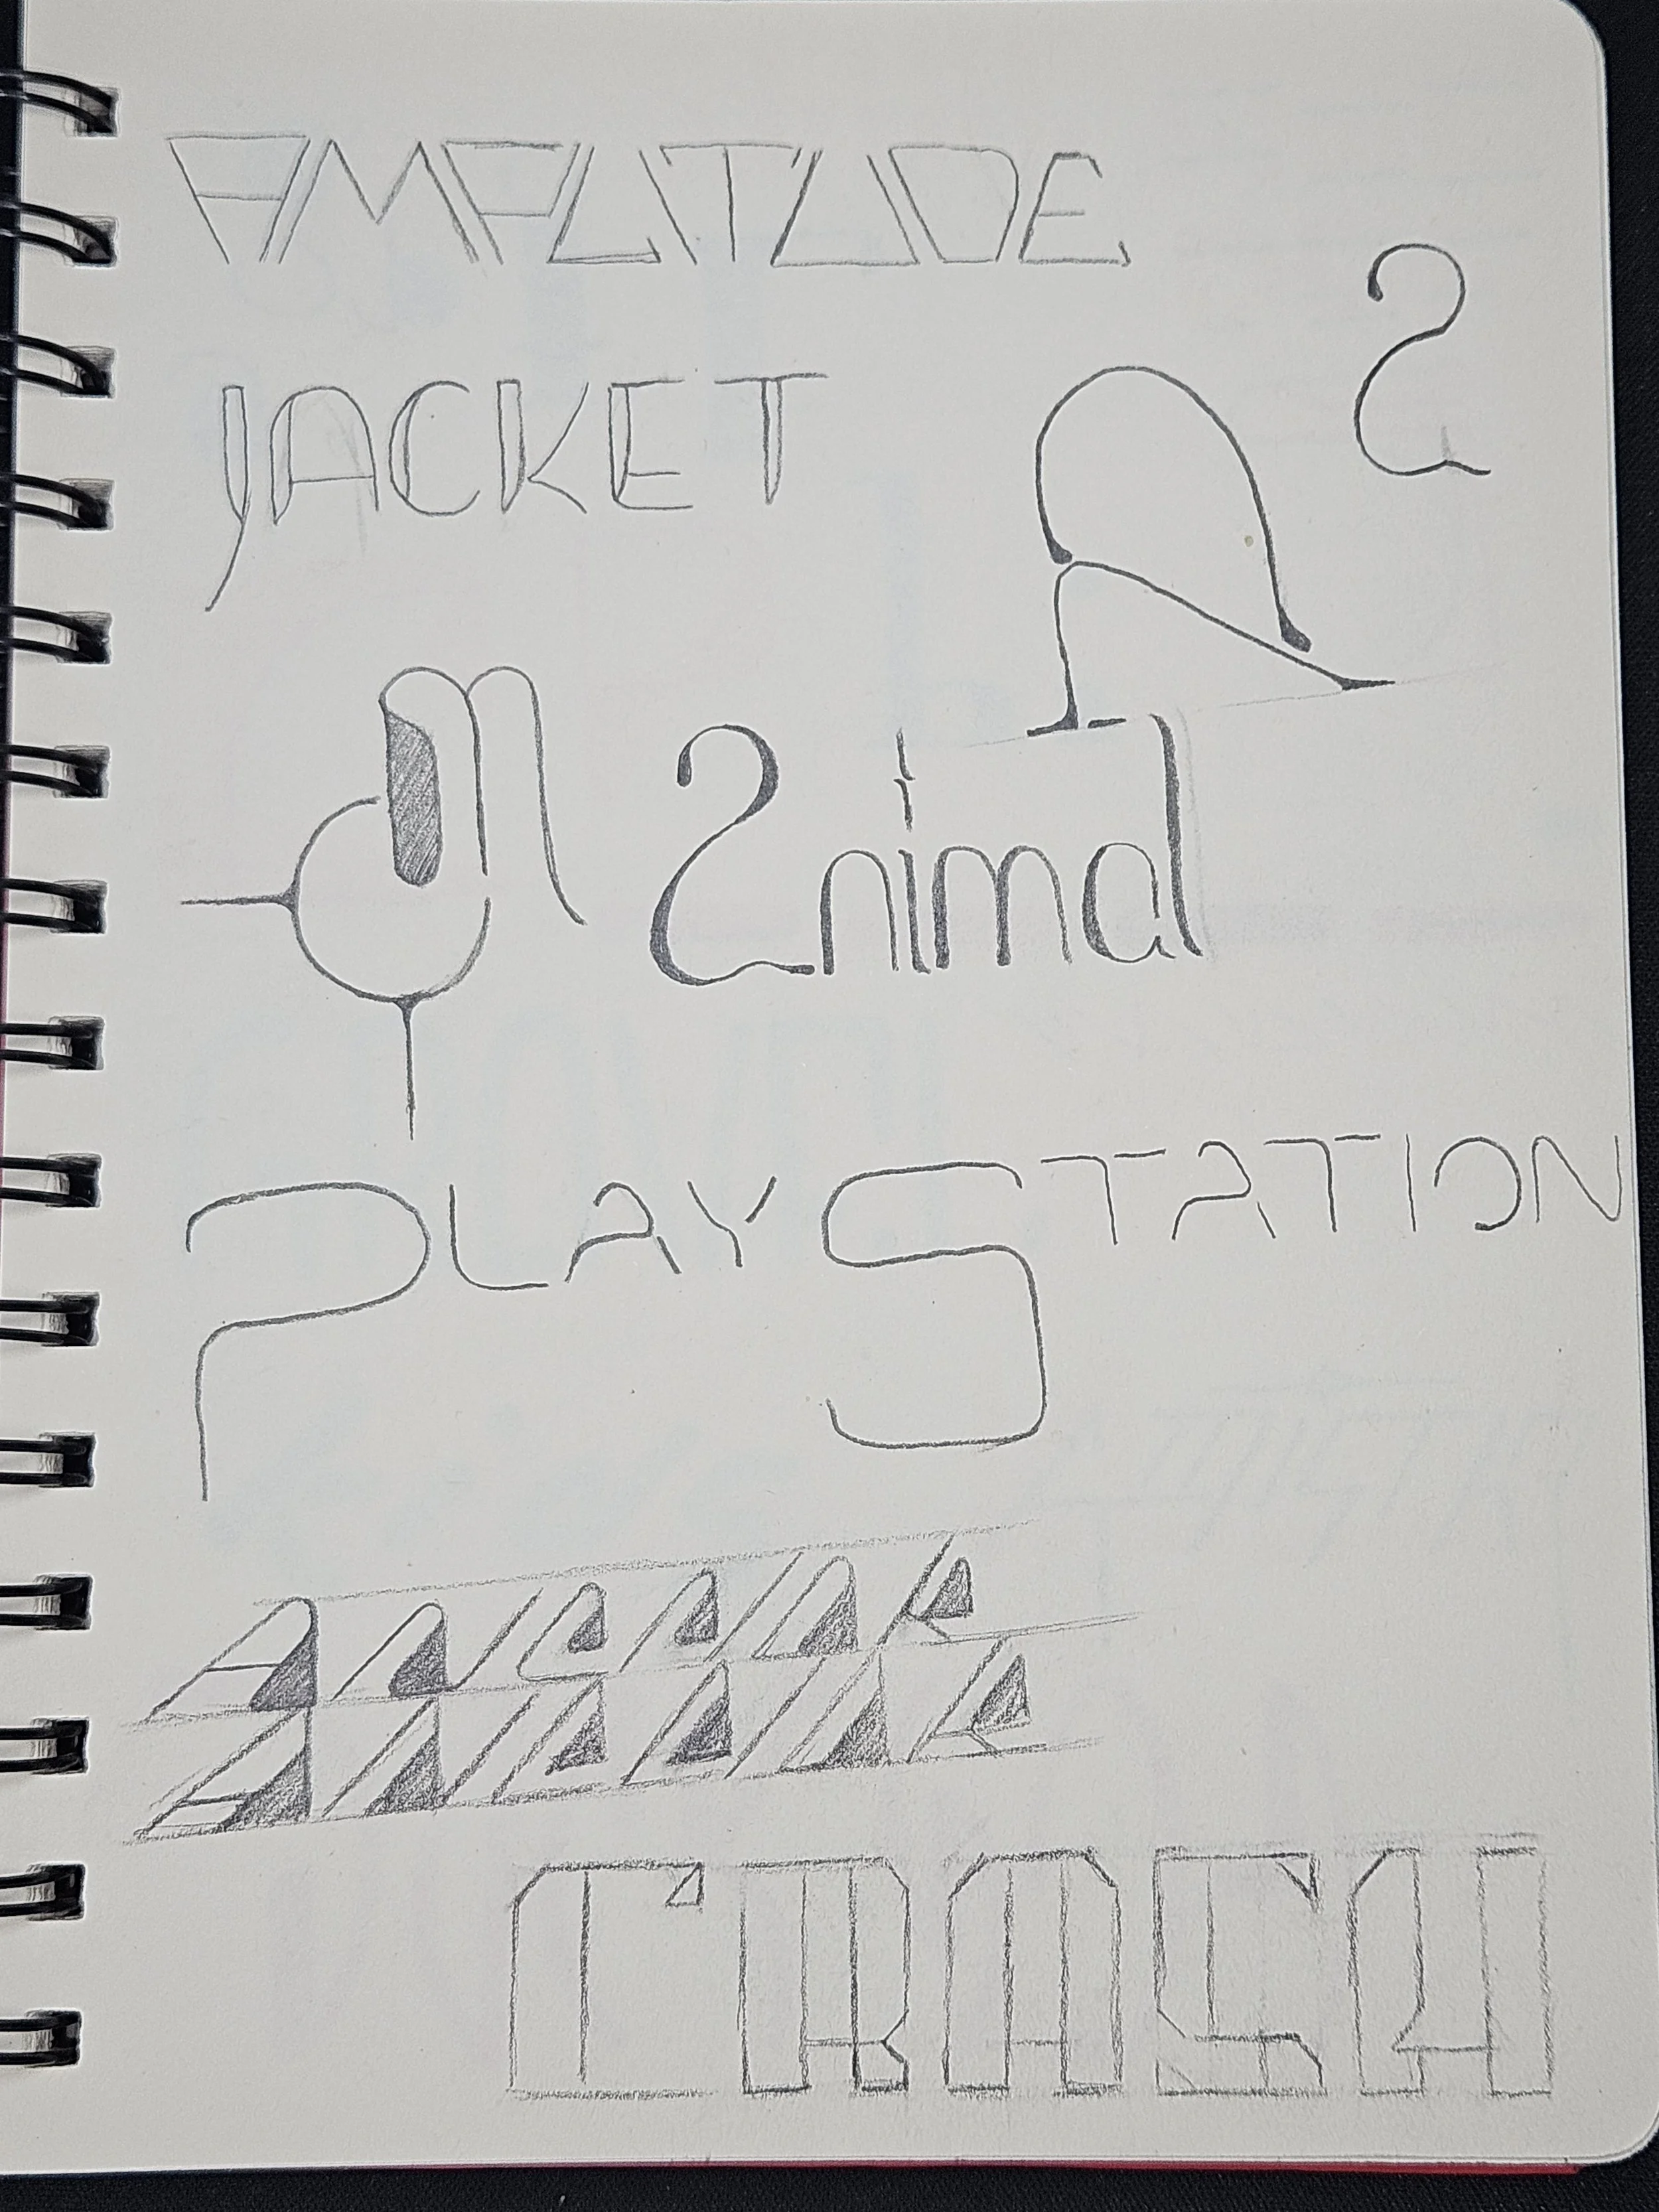 AMPLITUDE
JACKET
animal
PLAYSTATION
CRASH